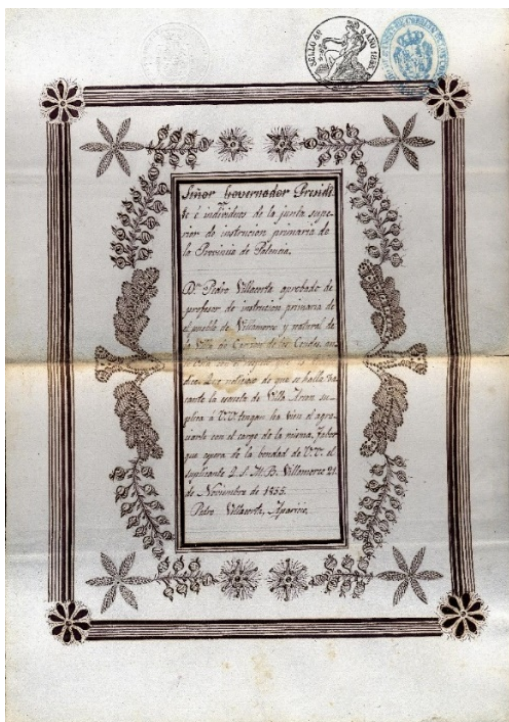 SELLO 4º
AÑO 1855.
Señor Governador Presidt.
te é individuos de la junta supe-
rior de instrucion primaria de
la Provincia de Palencia.
Dn. Pedro Villacorta aprobado de
profesor de instrucion primaria de
el pueblo de Villamorco y natural de
la Villa de Carrion de los Condes, an-
te V.V. con el
dice. Que noticioso de que se halla va-
cante la escuela de Villa Arian su-
plica á V.V. tengan ha bien el agra-
ciarle con el cargo de la misma, fabor
que espera de la bondad de V.V. el
suplicante Q. S. M. B. Villamorco 21
de Noviembre de 1855.
Pedro Villacorta, Aparicio.